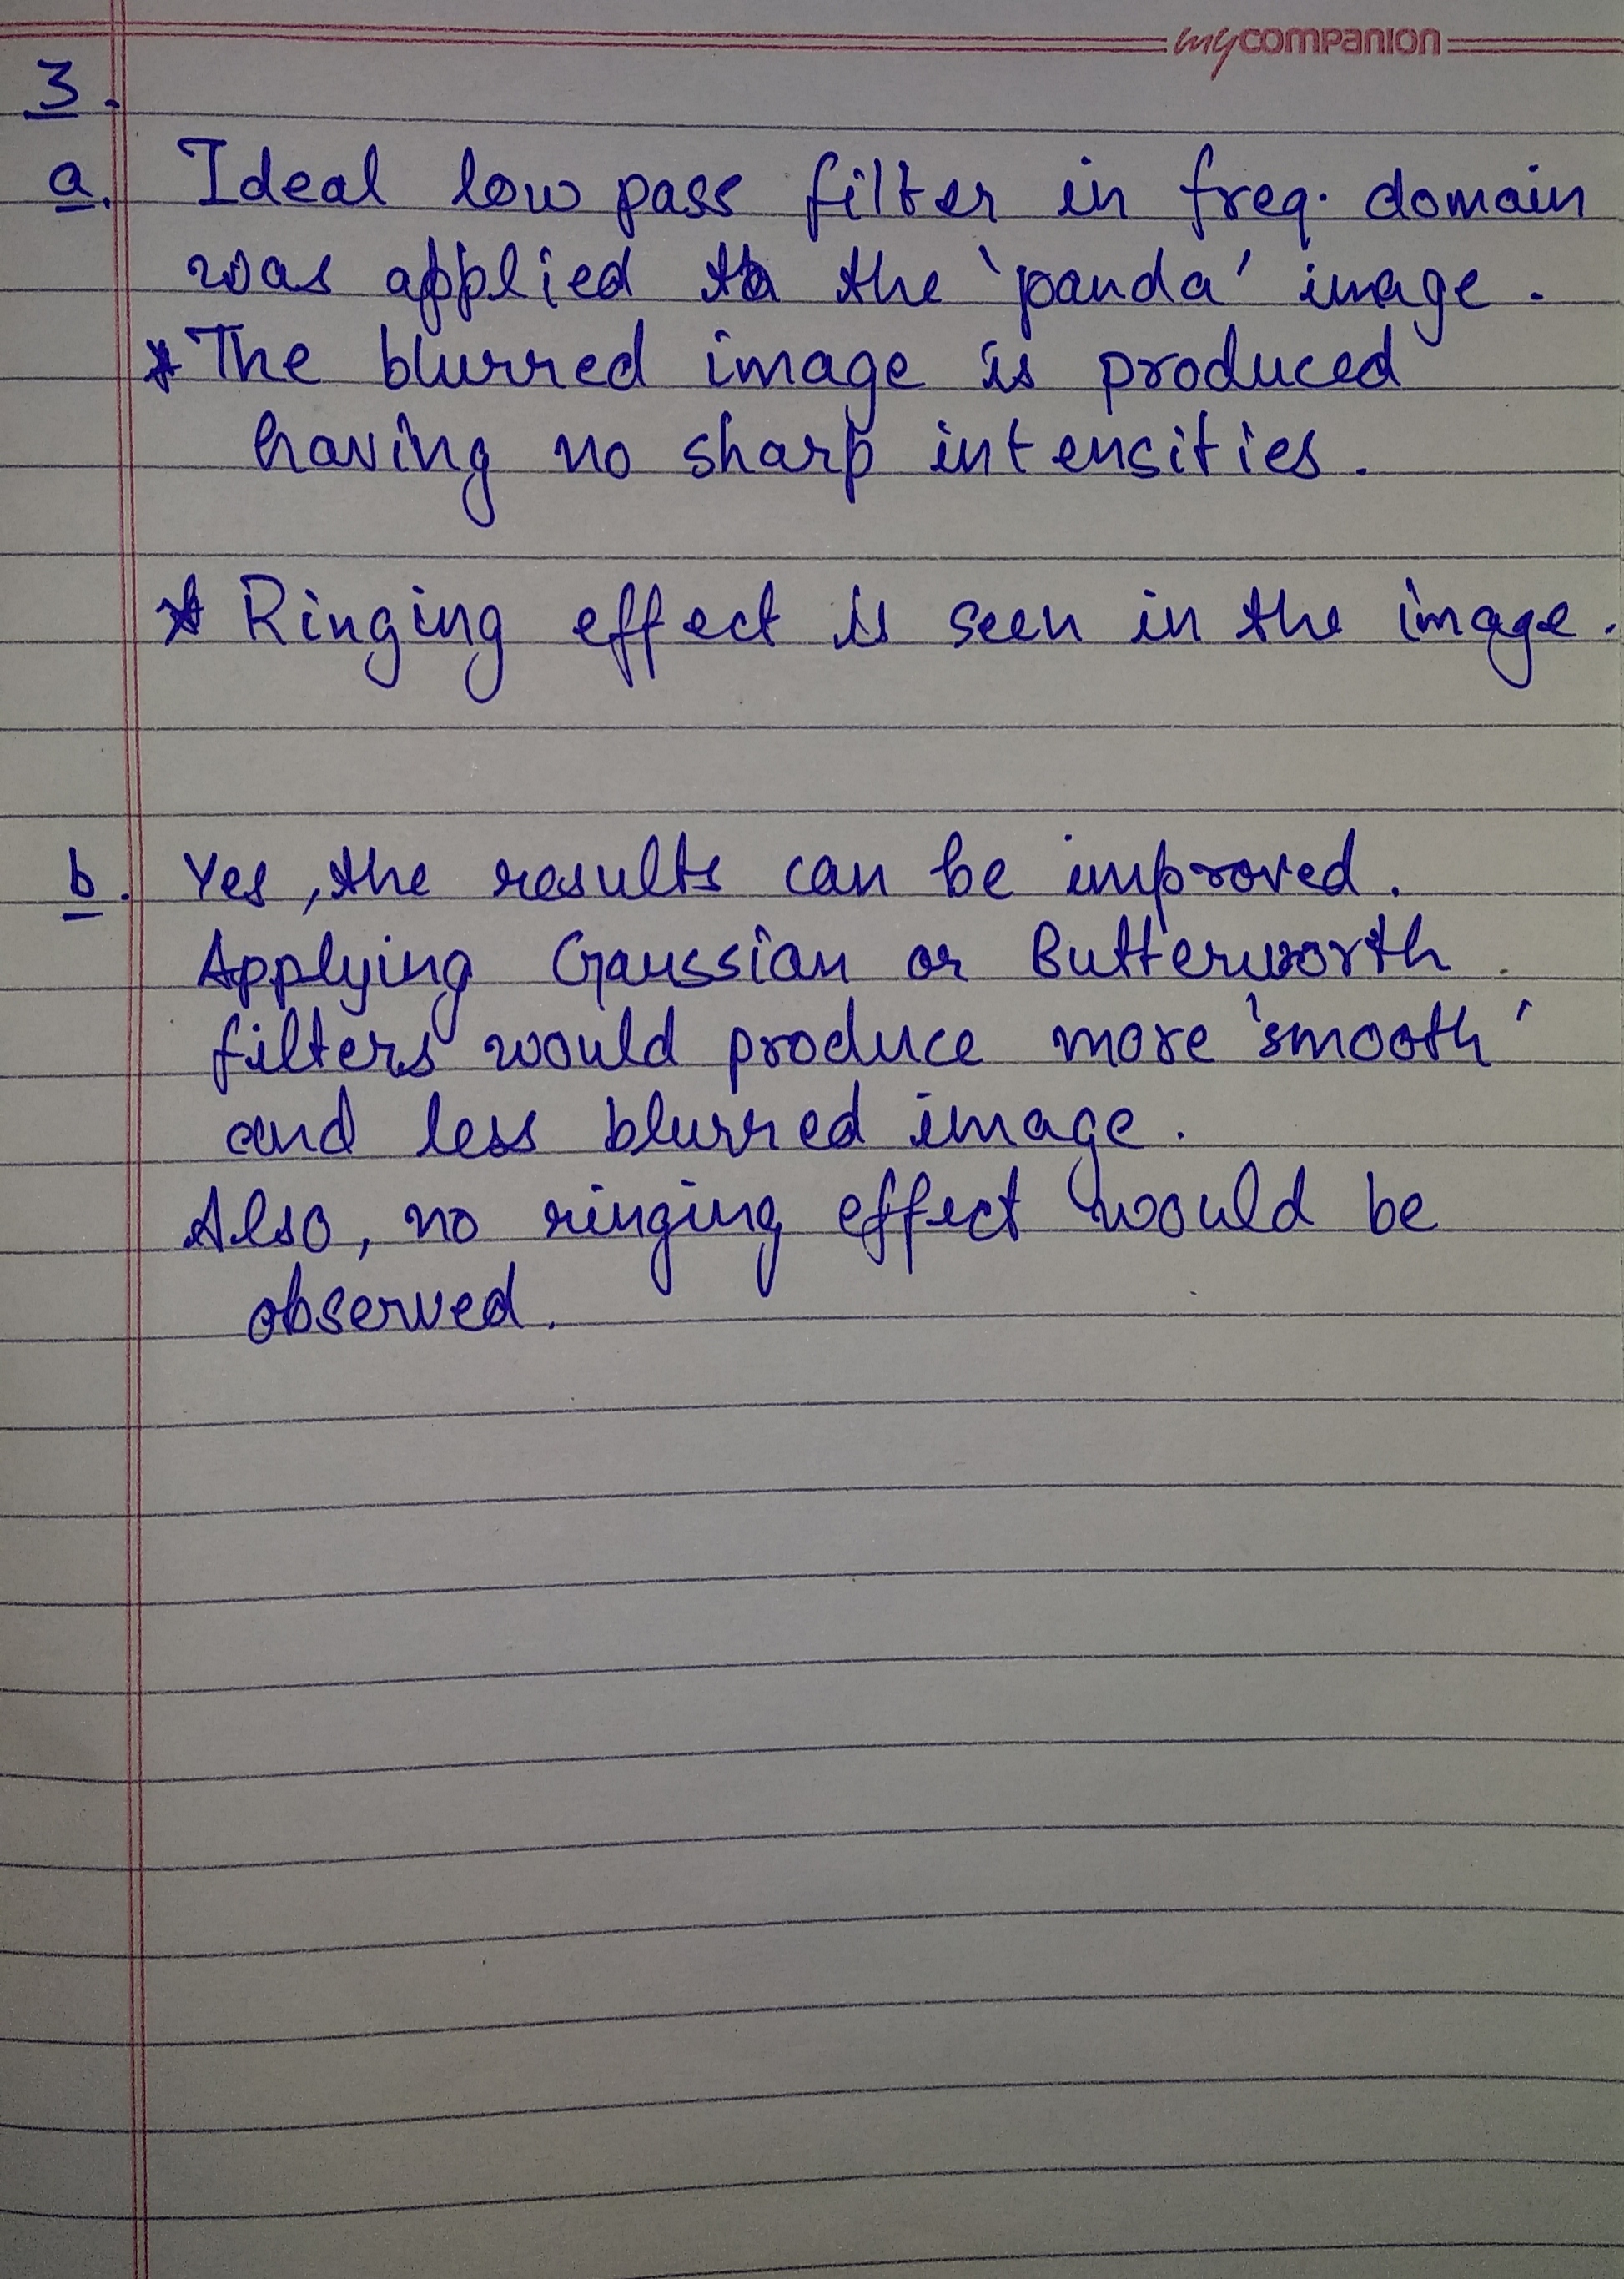 mycompanion
3.
a. Ideal low pass filter in freq. domain
was applied to the 'panda' image.
* The blurred image is produced
having no sharp intensities.
* Ringing effect is seen in the image.
b. Yes, the results can be improved.
Applying Gaussian or Butterworth
filters would produce more 'smooth'
and less blurred image.
Also, no ringing effect would be
observed.